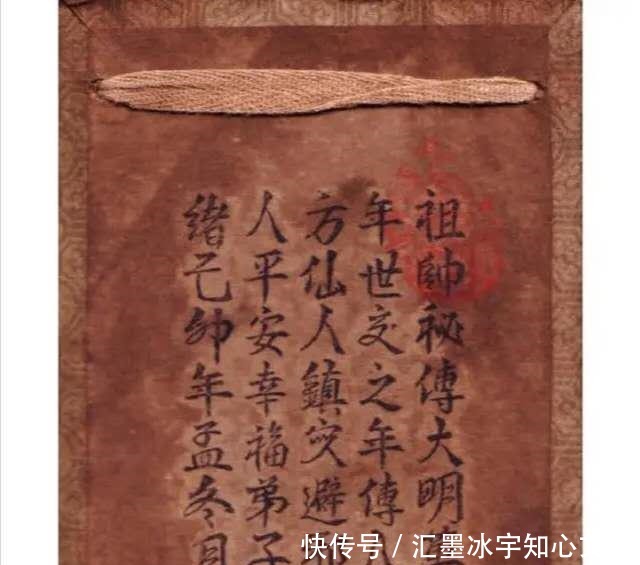 祖帥秘傳大明
年世交之年傳
方仙人鎮灾避
人平安幸福弟子
緒己卯年孟冬月
快传号 / 汇墨冰宇知心